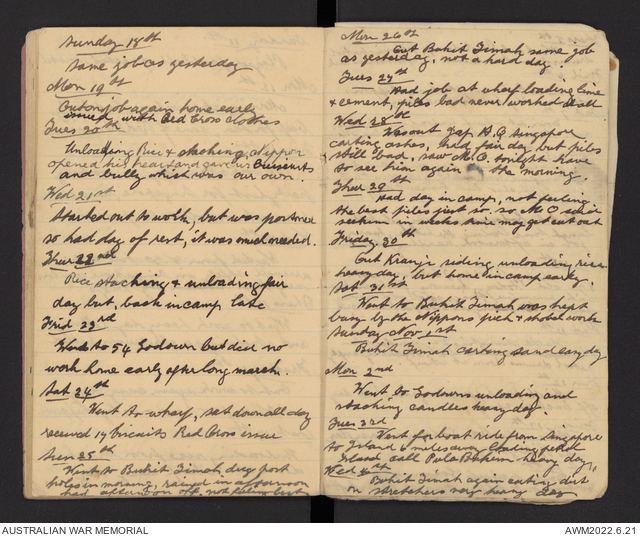 Sunday 18th
same job as yesterday
Mon 19th
Out on job again home early
issued with Red Cross clothes
Tues 20th
Unloading Rice & stacking, Nippon
opened his heart and gave us Biscuits
and bully which was our own.
Wed 21st
Started out to work, but was postponed
so had day of rest, it was much needed.
Thur 22nd
Rice stacking & unloading fair
day but, back in camp late
Frid 23rd
Went to 54 Godown but did no
work home early after long march.
Sat 24th
Went to wharf, sat down all day
received 14 biscuits Red Cross issue
Sun 25th
Went to Bukit Timah, dug post
holes in morning, rained in afternoon
had afternoon off, not feeling
Mon 26th
Out Bukit Timah same job
as yesterday, not a hard day.
Tues 27th
Had job at wharf loading lime
& cement, piles bad never worked at all
Wed 28th
Was out Jap H.Q. Singapore
carting ashes, had fair day but piles
still bad, saw M.O. tonight have
to see him again the morning.
Thur 29th
Had day in camp, not feeling
the best piles just so. so M O said
seethem in weeks time may get cut out
Friday. 30th
Out Kranji siding, unloading rice
heavy day, but home in camp early.
Sat 31st
Went to Bukit Timah was kept
busy by the Nippons pick & shovel work
Sunday Nov 1st
Bukit Timah carting sand easy day
Mon 2nd
Went to Godowns unloading and
stacking candles heavy day.
Tues 3rd
Went for boat ride from Singapore
to Island 6 miles away loading petrol
Island call Pula heavy day,
Wed 4th
Bukit Timah again carting dirt
on stretchers very heavy day
AUSTRALIAN WAR MEMORIAL
AWM2022.6.21